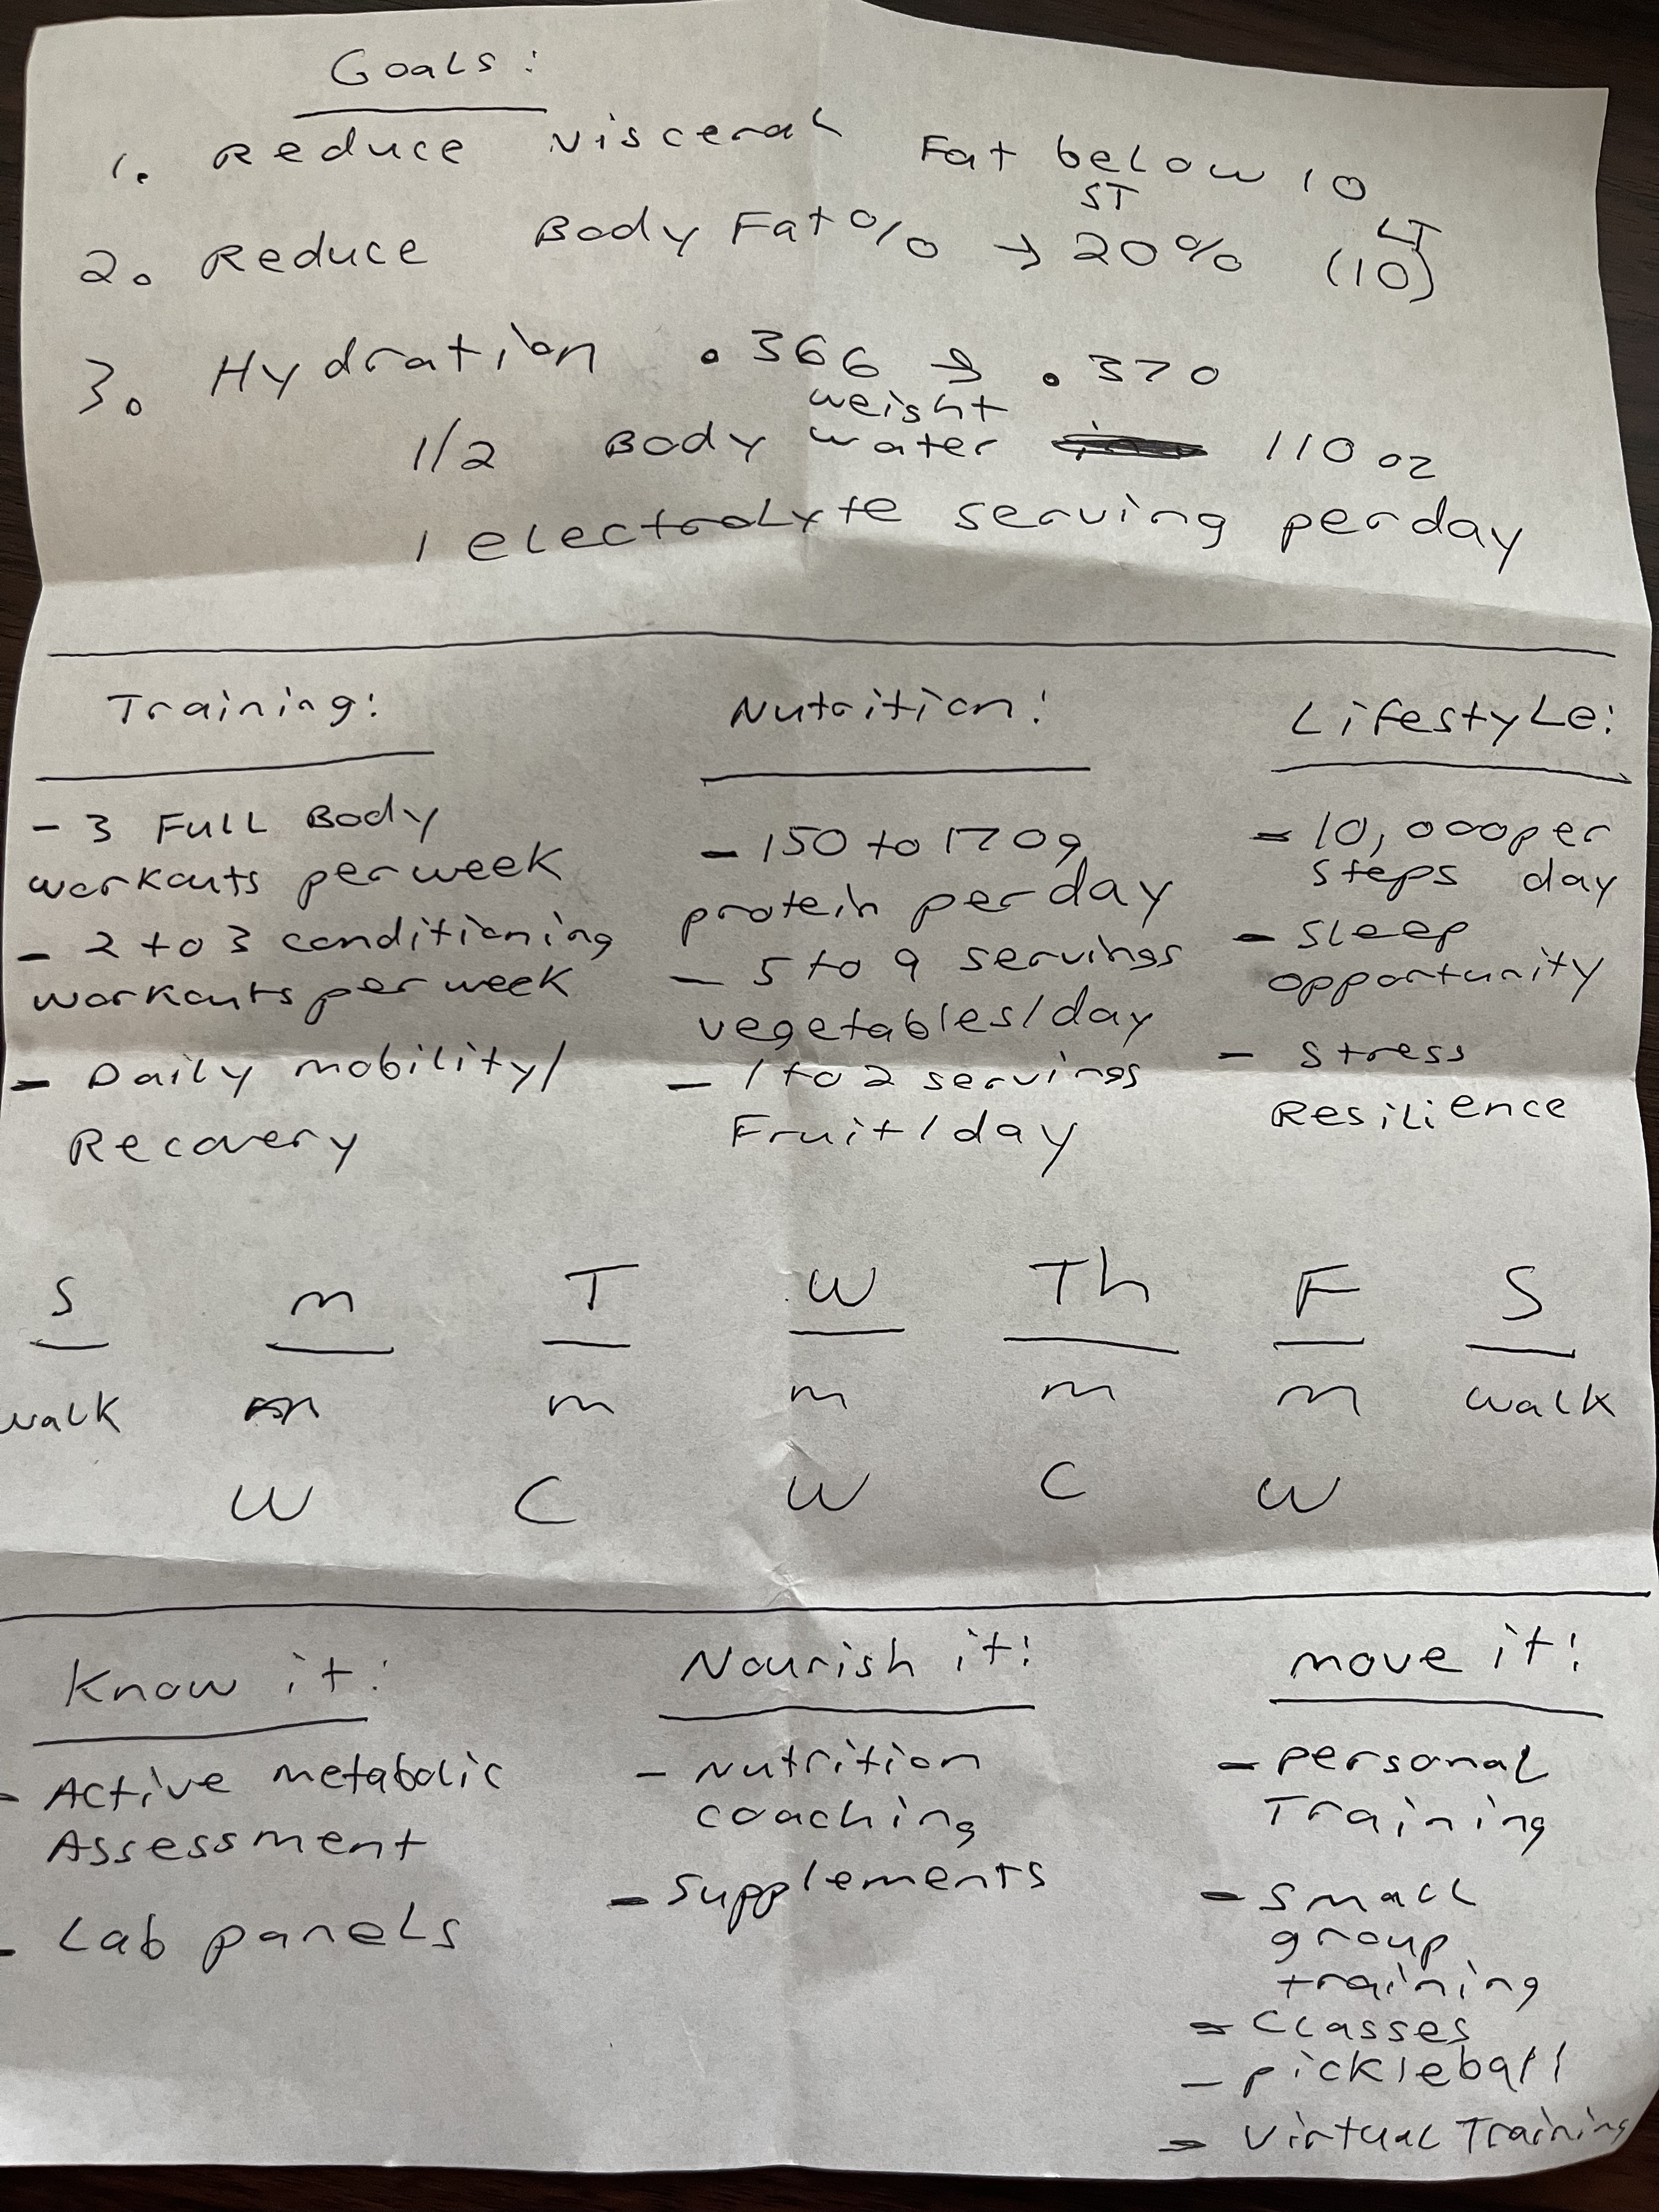 Goals:
1. Reduce Visceral Fat below 10
ST LT
2. Reduce Body Fat% → 20% (10)
3. Hydration .366 → .370
weight
1/2 Body water 110 oz
1 electrolyte serving per day
Training:
- 3 Full Body
workouts per week
- 2 to 3 conditioning
workouts per week
- Daily mobility/
Recovery
Nutrition:
- 150 to 170g
protein per day
- 5 to 9 servings
vegetables/day
- 1 to 2 servings
Fruit/day
Lifestyle:
- 10,000 per
steps day
- Sleep
opportunity
- Stress
Resilience
S m T W Th F S
walk m m m m m walk
W C W C W
Know it:
- Active metabolic
Assessment
- Lab panels
Nourish it:
- Nutrition
coaching
- Supplements
move it:
- personal
Training
- Small
group
training
- Classes
- pickleball
- Virtual Training